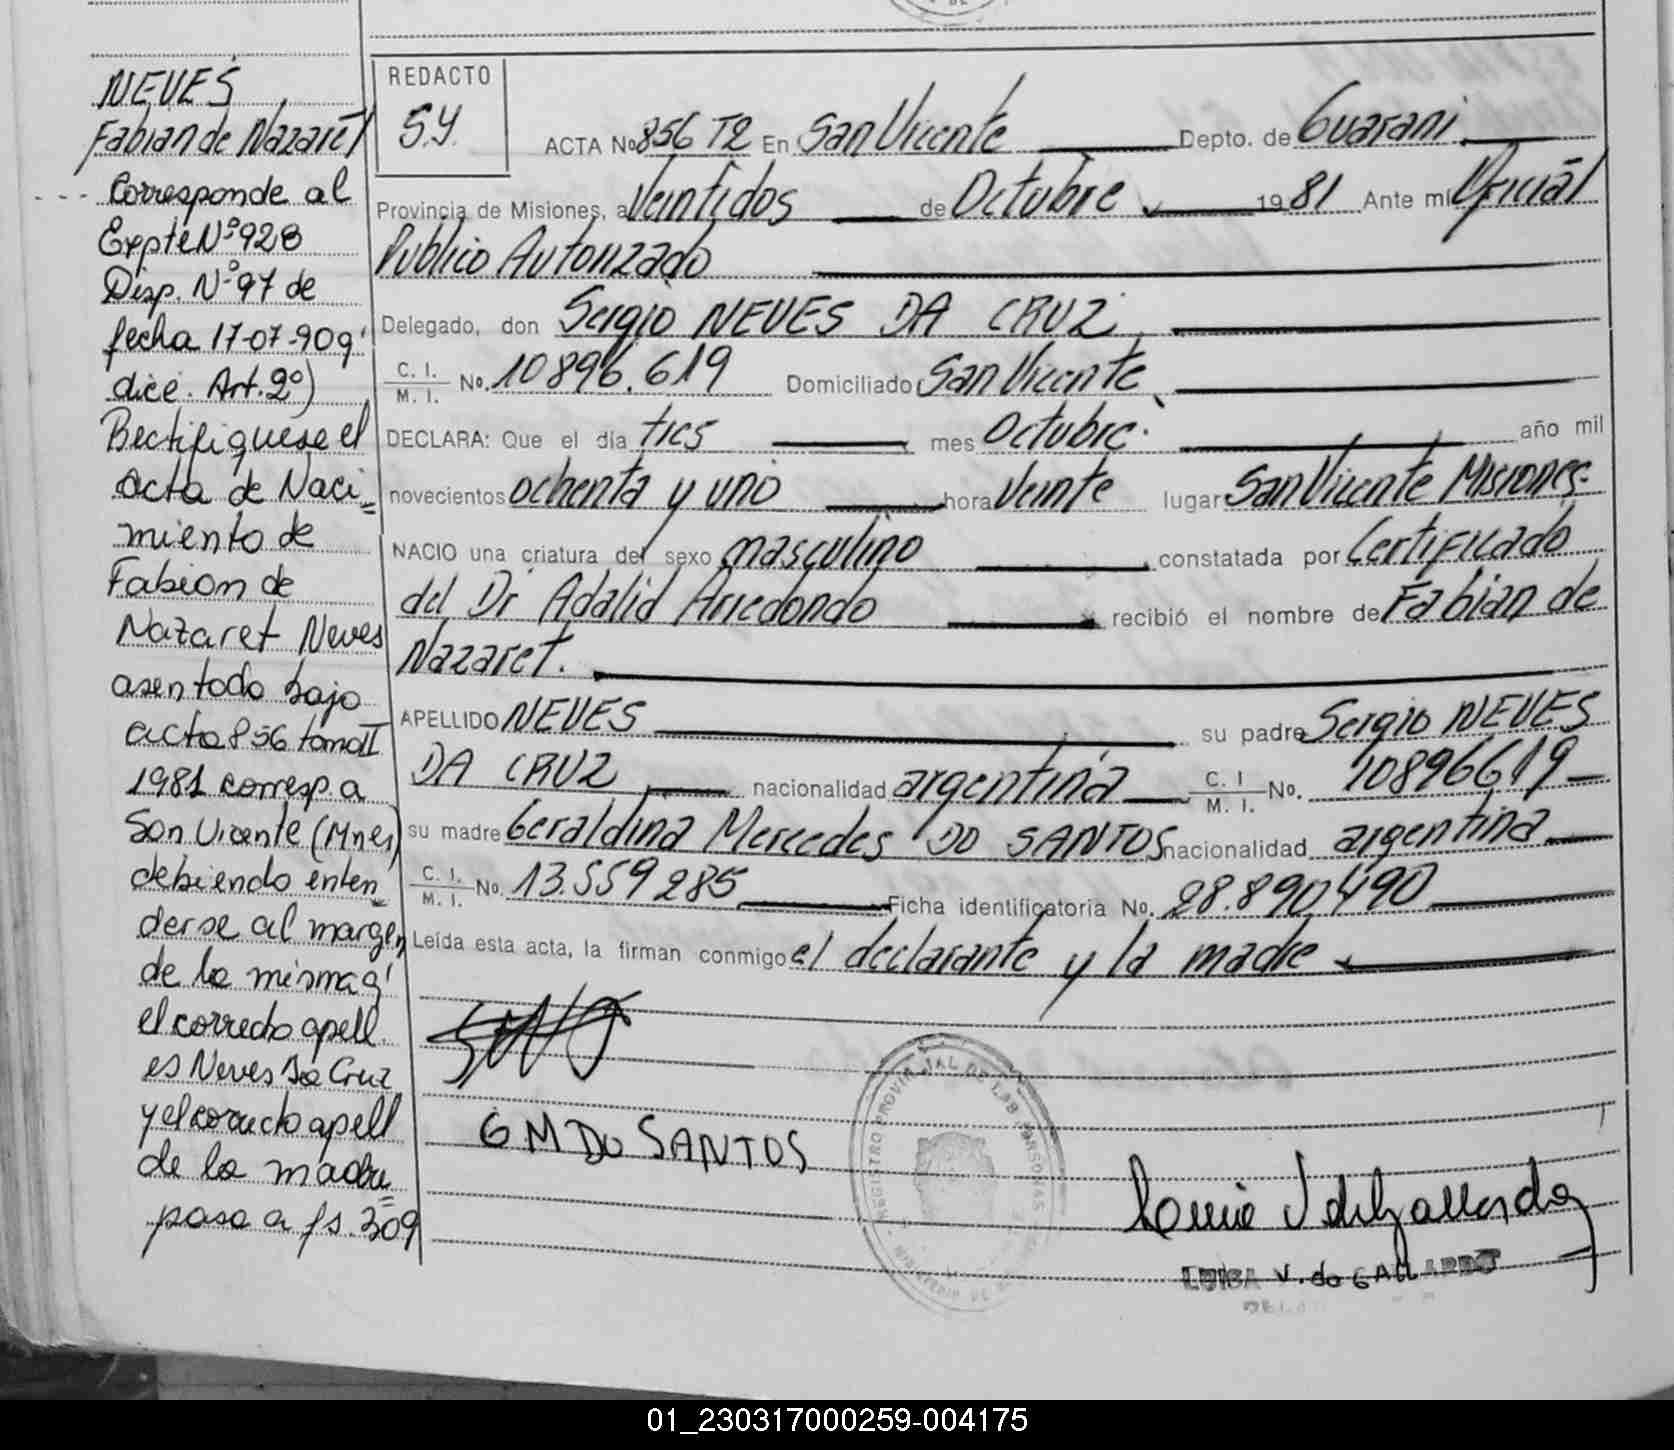 NEVES
Fabian de Nazaret
Corresponde al
Expte Nº 928
Disp. Nº 97 de
fecha 17-07-90 q'
dice. Art. 2º)
Rectifiquese el
acta de Naci=
miento de
Fabian de
Nazaret Neves
asentado bajo
acta 856 tomo II
1981 corresp. a
San Vicente (Mnes)
debiendo enten
derse al margen
de la misma q'
el correcto apell.
es Neves Da Cruz
y el correcto apell
de la madre
pasa a fs. 309
REDACTO
S.Y.
ACTA No 856 T2 En San Vicente Depto. de Guarani
Provincia de Misiones, a Veintidos de Octubre 1981 Ante mi Oficial
Publico Autorizado
Delegado, don Sergio NEVES DA CRUZ
C. I. M. I. No. 10896.619 Domiciliado San Vicente
DECLARA: Que el día tres mes Octubre. año mil
novecientos ochenta y uno hora Veinte lugar San Vicente Misiones.
NACIO una criatura del sexo masculino constatada por Certificado
del Dr Adalid Arredondo recibió el nombre de Fabian de
Nazaret.
APELLIDO NEVES su padre Sergio NEVES
DA CRUZ nacionalidad argentina C. I M. I. No. 10896619
su madre Geraldina Mercedes DO SANTOS nacionalidad argentina
C. I. M. I. No. 13.559285 Ficha identificatoria No. 28.890.490
Leída esta acta, la firman conmigo el declarante y la madre
G M DO SANTOS
REGISTRO PROVINCIAL DE LAS PERSONAS
LUISA V. de GALLARDO
01_230317000259-004175